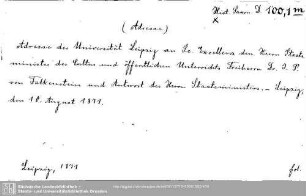 Hist. Saxon. D 100,1m
x
(Adresse)
Adresse der Universität Leipzig an Se. Excellenz den Herrn Staats
minister des Cultus und öffentlichen Unterrichts Freiherrn Dr. J. P.
von Falkenstein und Antwort des Herrn Staatsministers. - Leipzig,
den 18. August 1871.
Leipzig, 1871
Sächsische Landesbibliothek -
Staats- und Universitätsbibliothek Dresden